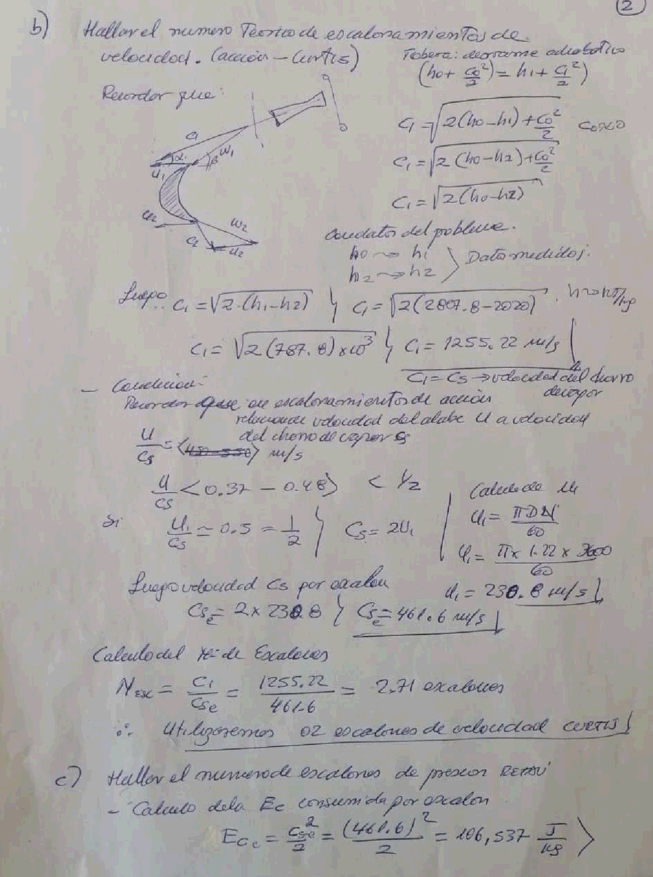 2
b) Hallar el numero Teorico de escalonamientos de
velocidad. (acción - Curtis)
Tobera: derrame adiabatico
(h0 + C0²/2) = h1 + C1²/2)
Recordar que:
C1 = √2(h0-h1) + C0²/2 C0≈0
C1 = √2(h0-h2) + C0²/2
C1 = √2(h0-h2)
C1 W1
α β
U1
U2 W2
C2 U2
datos del problema.
h0 → h1
h2 → h2 } Datos medidos.
Luego. C1 = √2·(h1-h2) } C1 = √2(2807.8-2020)
C1 = √2(787.8)x10³ } C1 = 1255.22 m/s
C1 = Cs → velocidad del chorro
de vapor
- Condicion:
Recordar que en escalonamientos de acción
relacion de velocidad del alabe U a velocidad
del chorro de vapor Cs
U/Cs = m/s
U/Cs < 0.37 - 0.48 > < 1/2
Calculo de U1
U1 = πDN/60
Si U1/Cs ≃ 0.5 = 1/2 } Cs = 2U1
U1 = π x 1.22 x 3600/60
U1 = 230.8 m/s
Luego velocidad Cs por escalon
Cse = 2 x 230.8 } Cse = 461.6 m/s
Calculo del Nº de Escalones
Nesc = C1/Cse = 1255.22/461.6 = 2.71 escalones
∴ Utilizaremos 02 escalones de velocidad CURTIS
c) Hallar el numero de escalones de presion
- Calculo de la Ec consumida por escalon
Ece = Cse²/2 = (461.6)²/2 = 106,537 J/kg